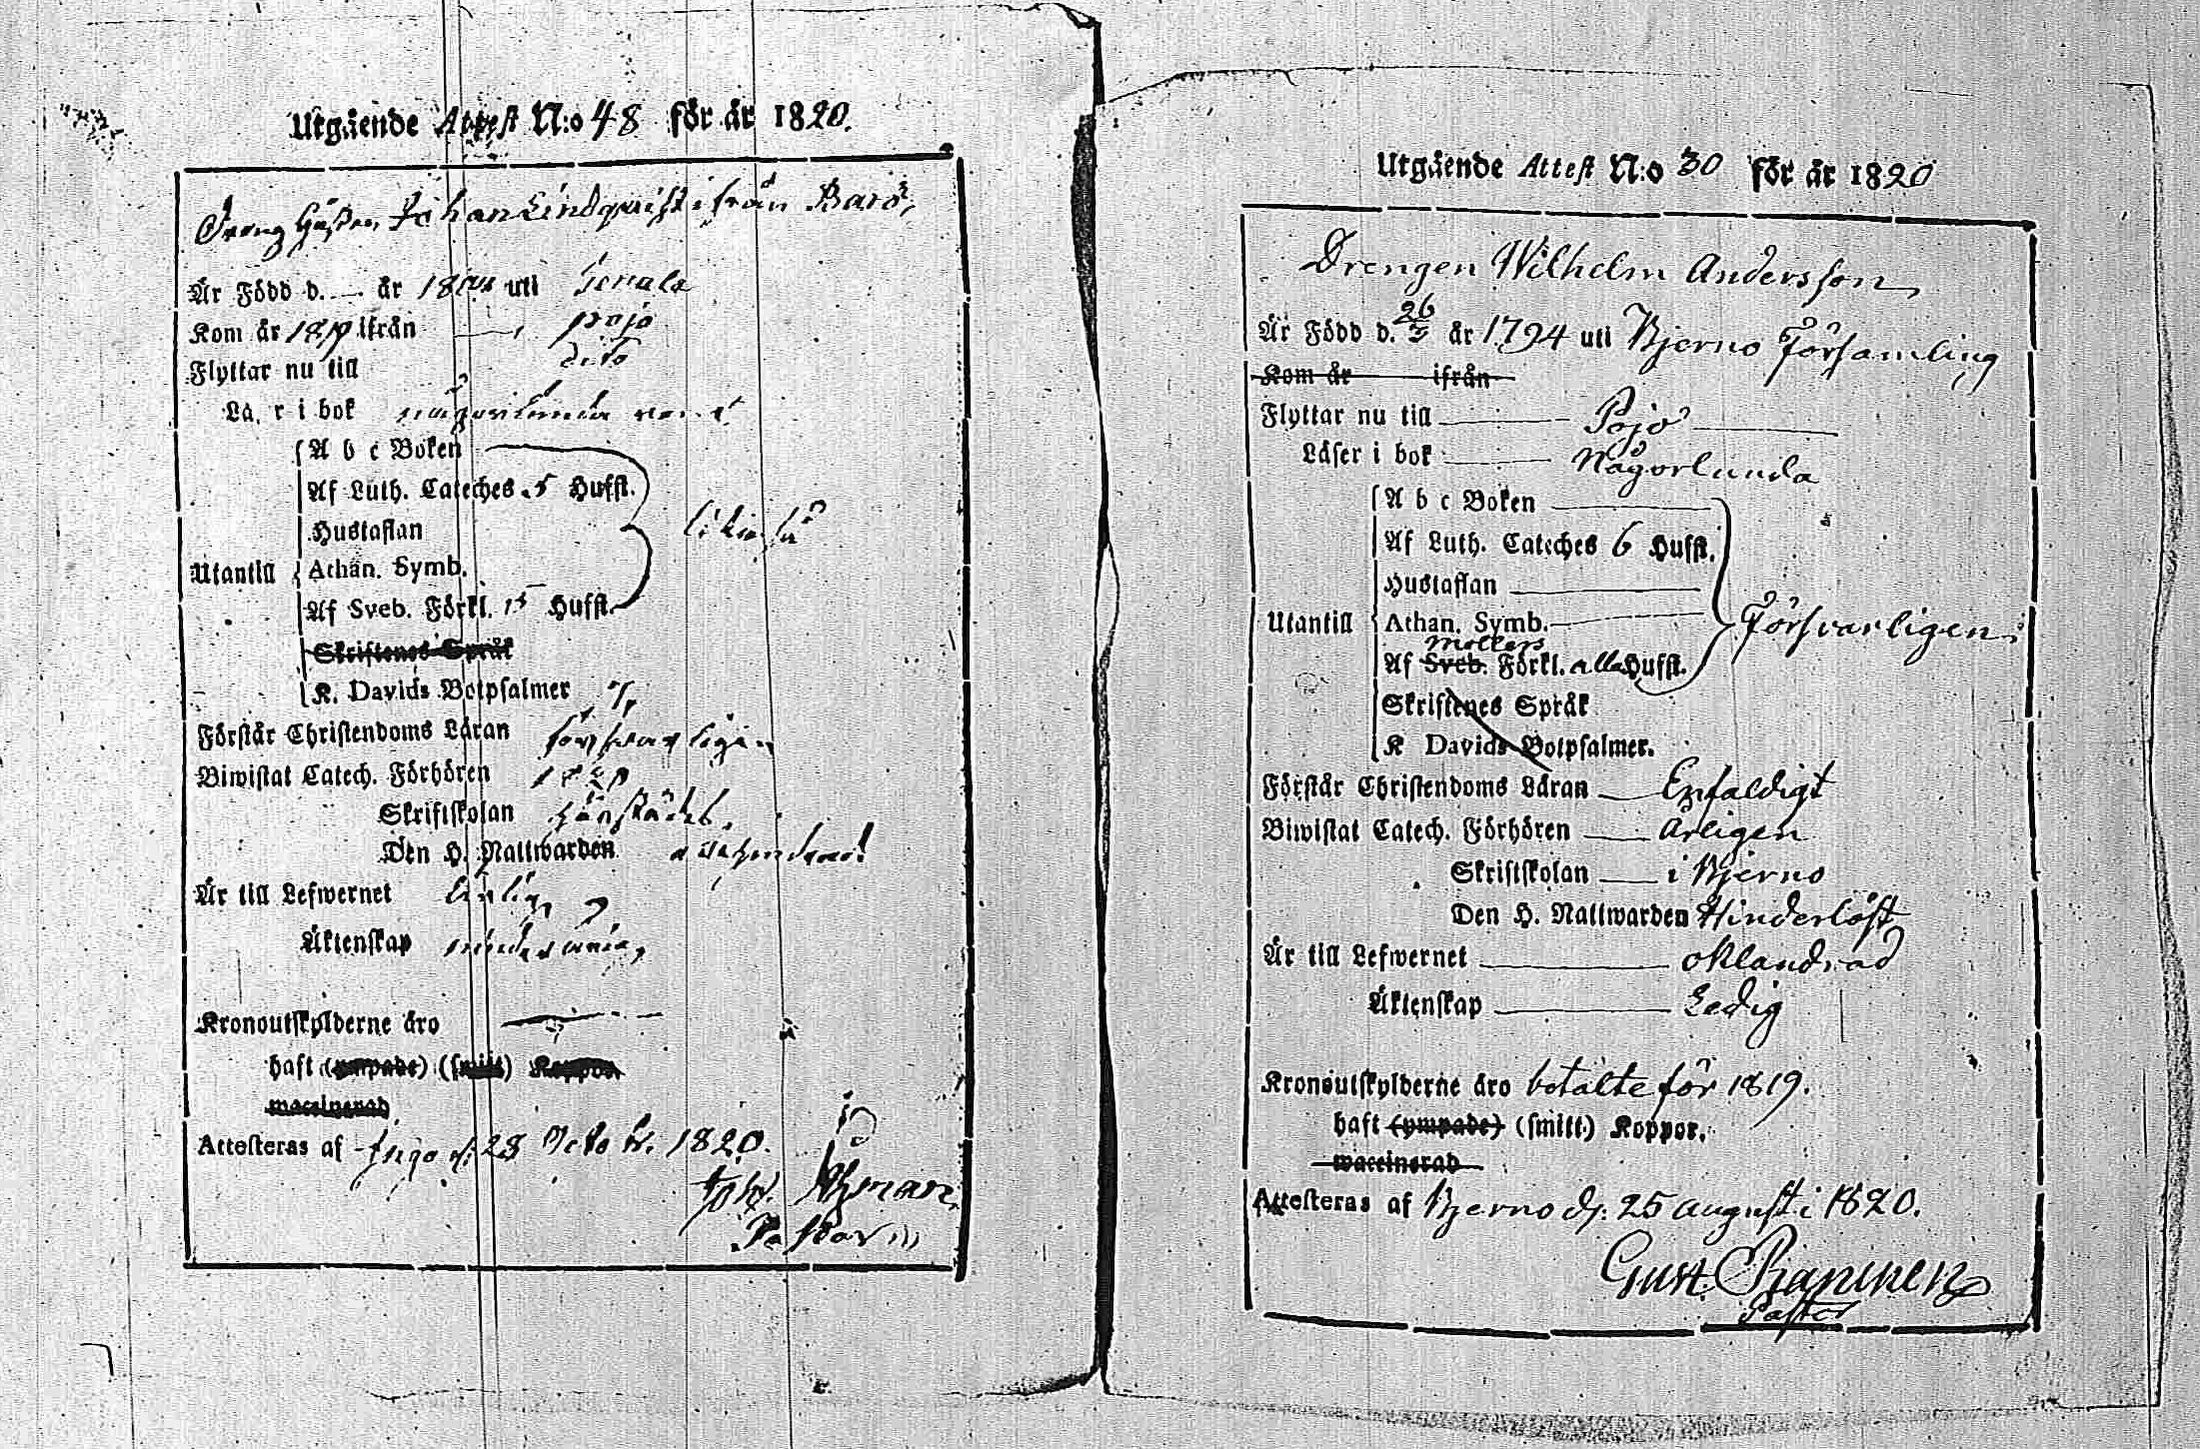 Utgående Attest N:o 48 för år 1820.
Johan Lindqvist ifrån Barö,
Är Född d. — år uti
Kom år ifrån Pojo
Flyttar nu till dito
Läser i bok någorlunda rent
A b c Boken
Af Luth. Cateches 5 Hufst.
Hustaflan
likaså
Utantill
Athan. Symb.
Af Sveb. Förkl. 15 Hufst.
Skriftenes Språk
K. Davids Botpsalmer 7,
Förstår Christendoms Läran försvarligen
Biwistat Catech. Förhören 1820
Skriftskolan
Den H. Nattwarden
Är till Lefwernet Ärlig,
Äktenskap
Kronoutskylderne äro —
haft (ympade) (smitt) Koppor,
waccinerad
Attesteras af Ingo d. 28 Octobr. 1820.
Joh. Åhman
Pastor
Utgående Attest N:o 30 för år 1820
Drengen Wilhelm Andersson
Är Född d. 26/3 år 1794 uti Bjerno Församling
Kom år ifrån
Flyttar nu till Pojo
Läser i bok Någorlunda
A b c Boken
Af Luth. Cateches 6 Hufst.
Hustaflan
Utantill
Athan. Symb.
Försvarligen
Möllers
Af Sveb. Förkl. alla Hufst.
Skriftenes Språk
K Davids Botpsalmer.
Förstår Christendoms Läran Enfaldigt
Biwistat Catech. Förhören Årligen
Skriftskolan i Bjerno
Den H. Nattwarden Hinderlöst
Är till Lefwernet oklandrad
Äktenskap Ledig
Kronoutskylderne äro betalte för 1819.
haft (ympade) (smitt.) Koppor.
waccinerad
Attesteras af Bjerno d. 25 august i 1820.
Gust.
Pastor